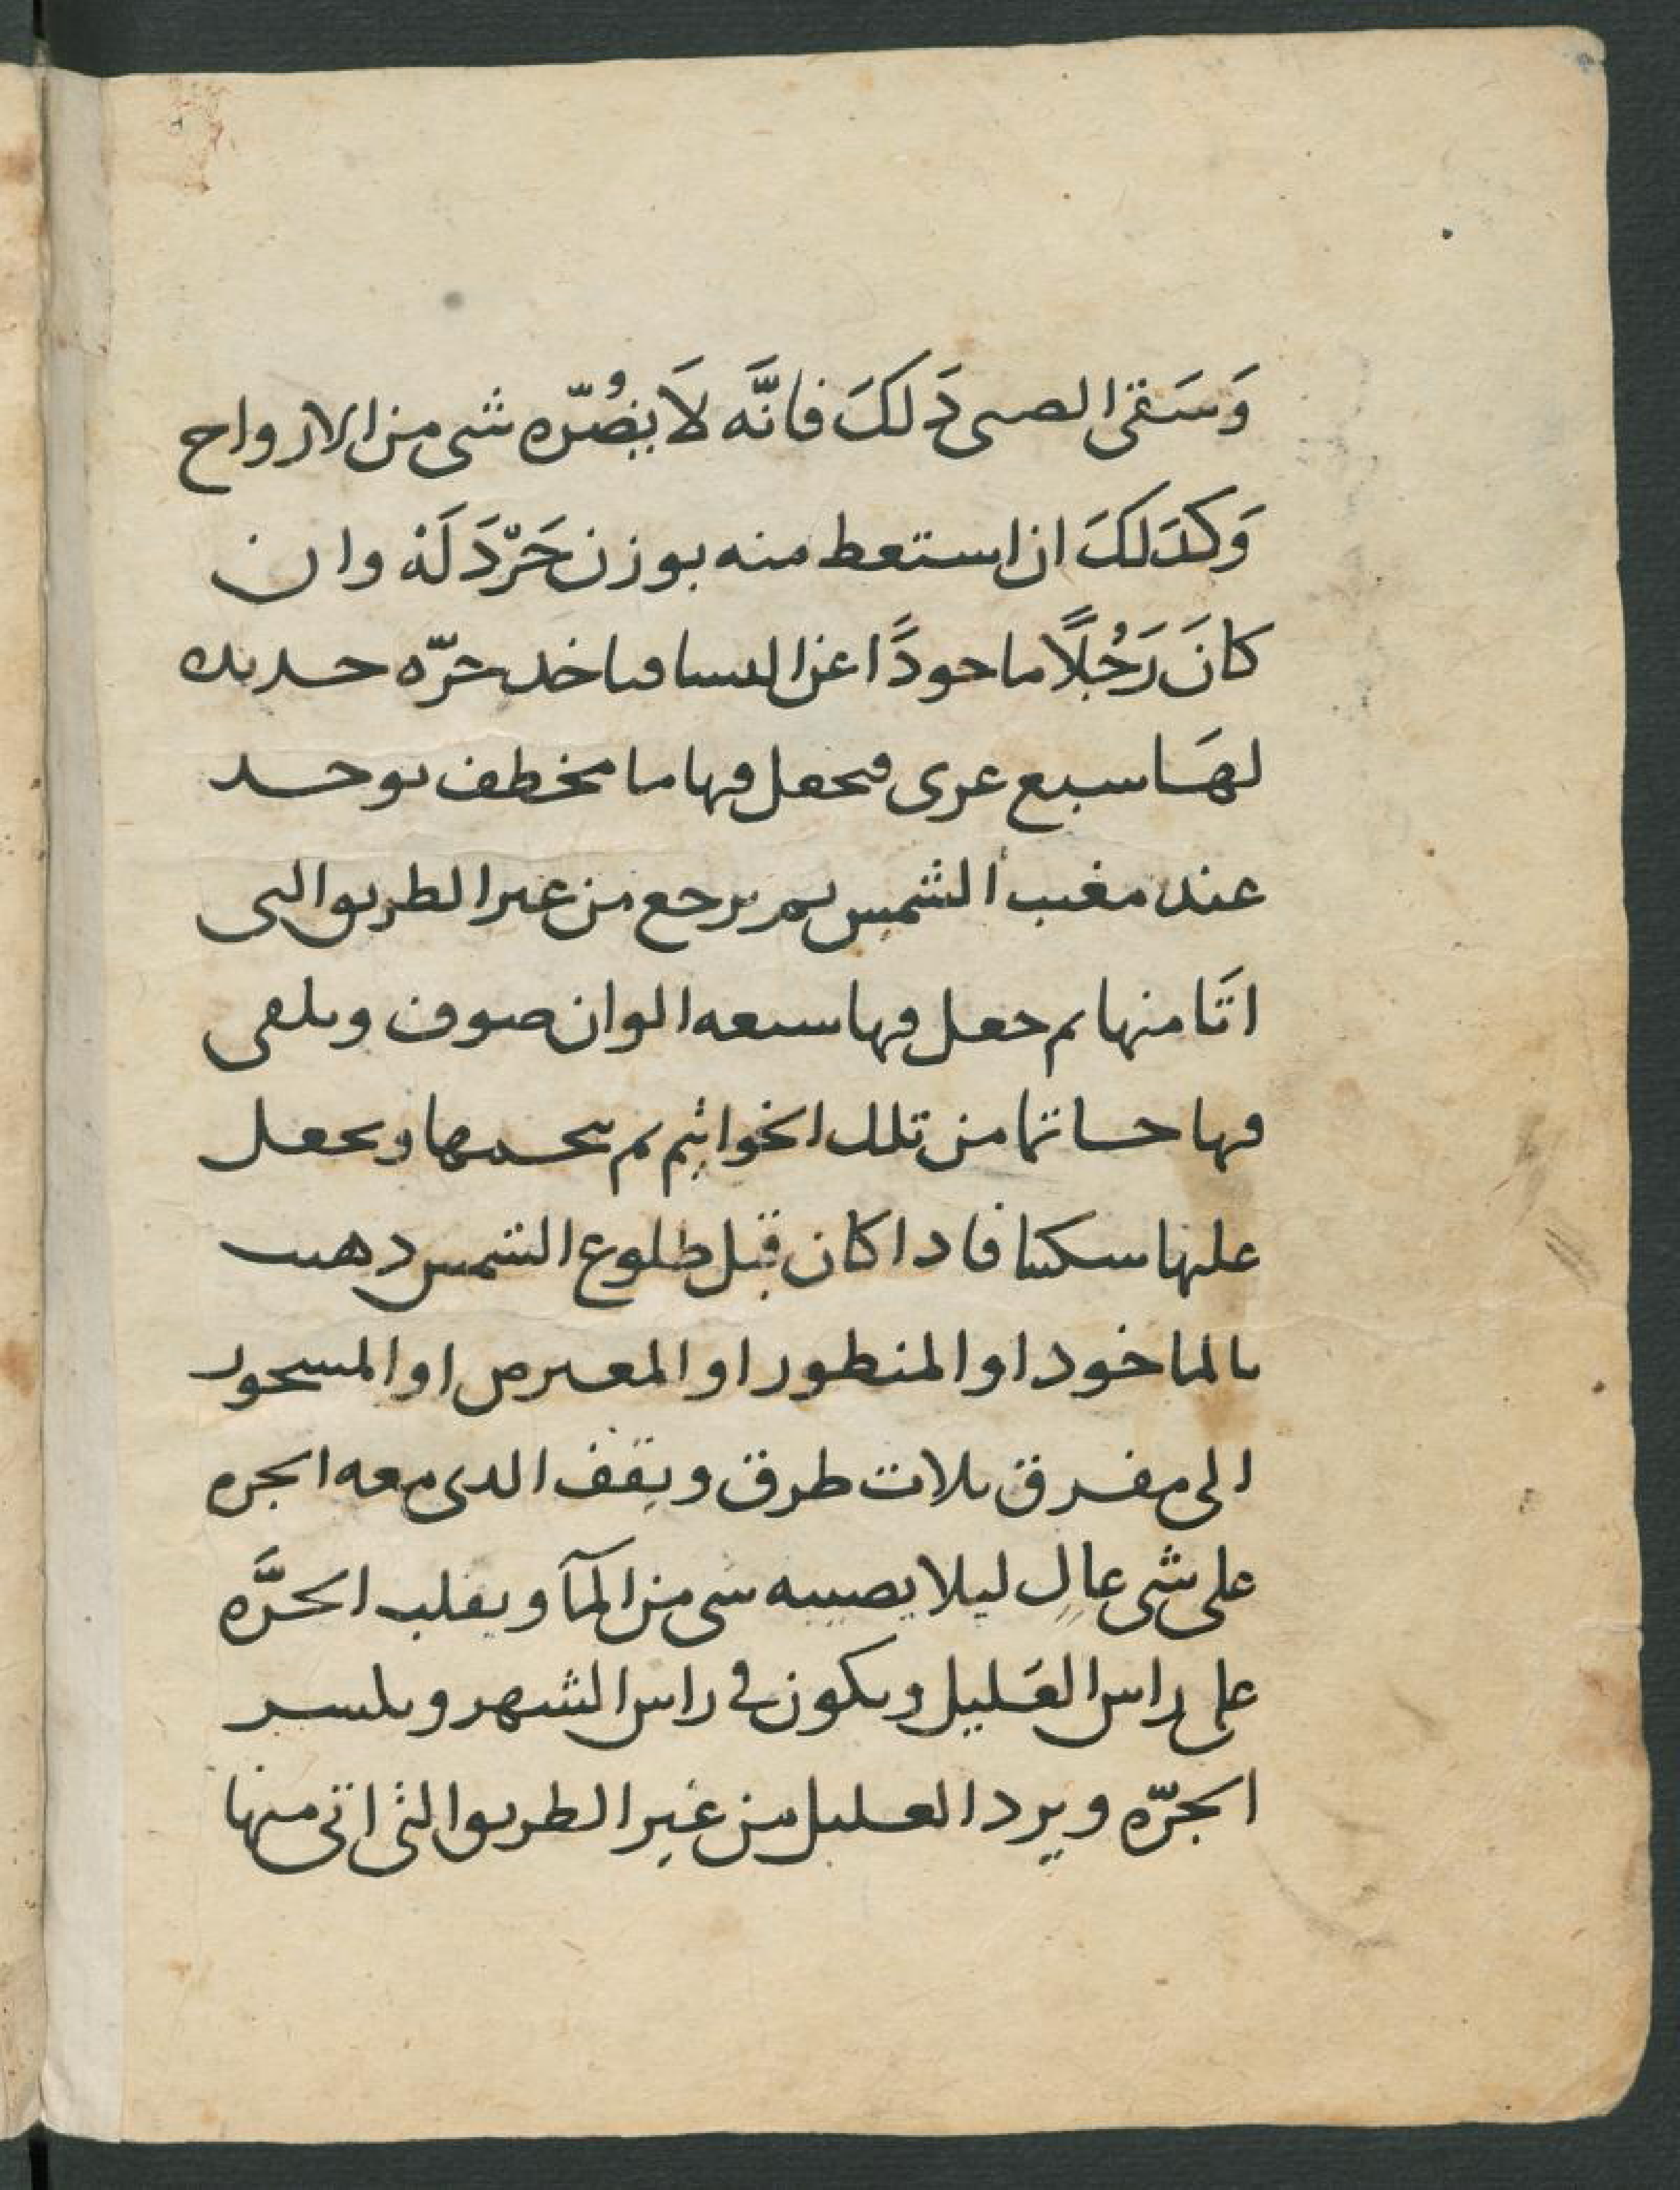 وَسَقى الصبى دَلكَ فانَّه لَا يضُرّه شى من الارواح
وَكدَلكَ ان استعط منه بوزن خَرْدَلَة وان
كانَ رَجُلًا ماخودًا عن النسا فياخد جرّه جديده
لهَا سبع عرى فيجعل فيها ما مخطف يوخد
عند مغيب الشمس ثم يرجع من غير الطريق التى
اتَا منها ثم يجعل فيها سبعه الوان صوف ويلقى
فيها خاتما من تلك الخواتيم ثم ينجمها ويجعل
عليها سكينا فادا كان قبل طلوع الشمس دهب
بالماخود او المنطور او المعترض او المسحور
الى مفرق ثلاث طرق ويقف الدى معه الجره
على شى عالِ ليلا يصيبه شى من المآ ويقلب الجرَّه
على راس العَليل ويكون فى راس الشهر ويكسر
الجرّه ويرد العليل من غير الطريق التى اتى منها